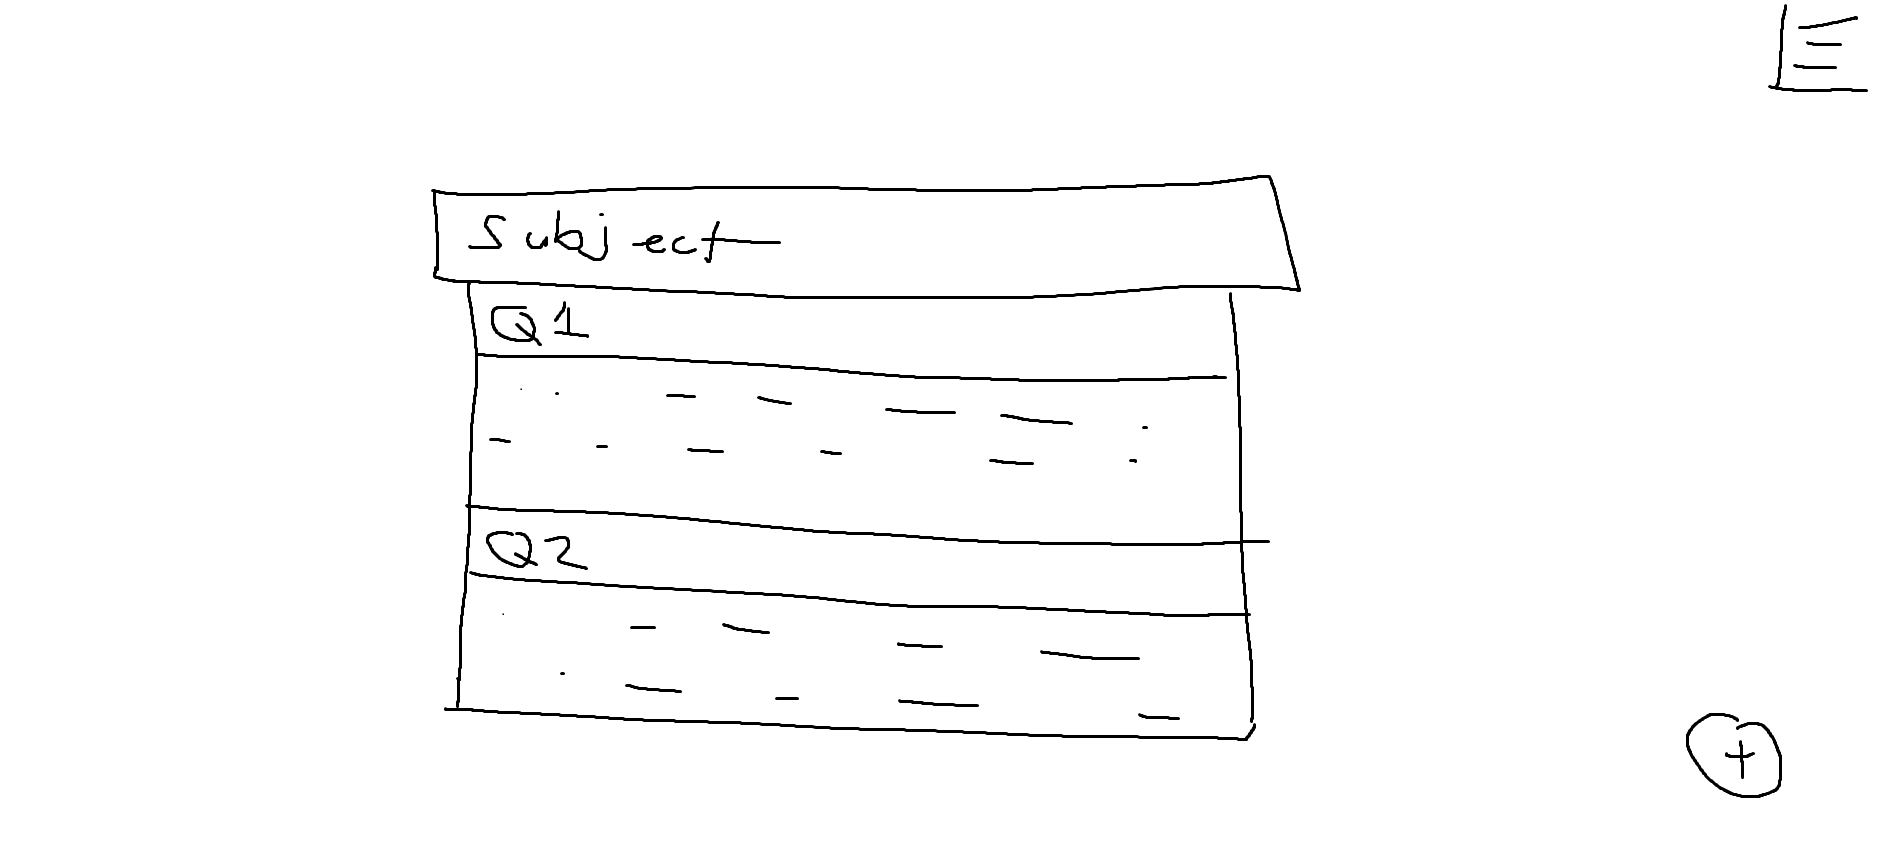 Subject
Q1
Q2
+